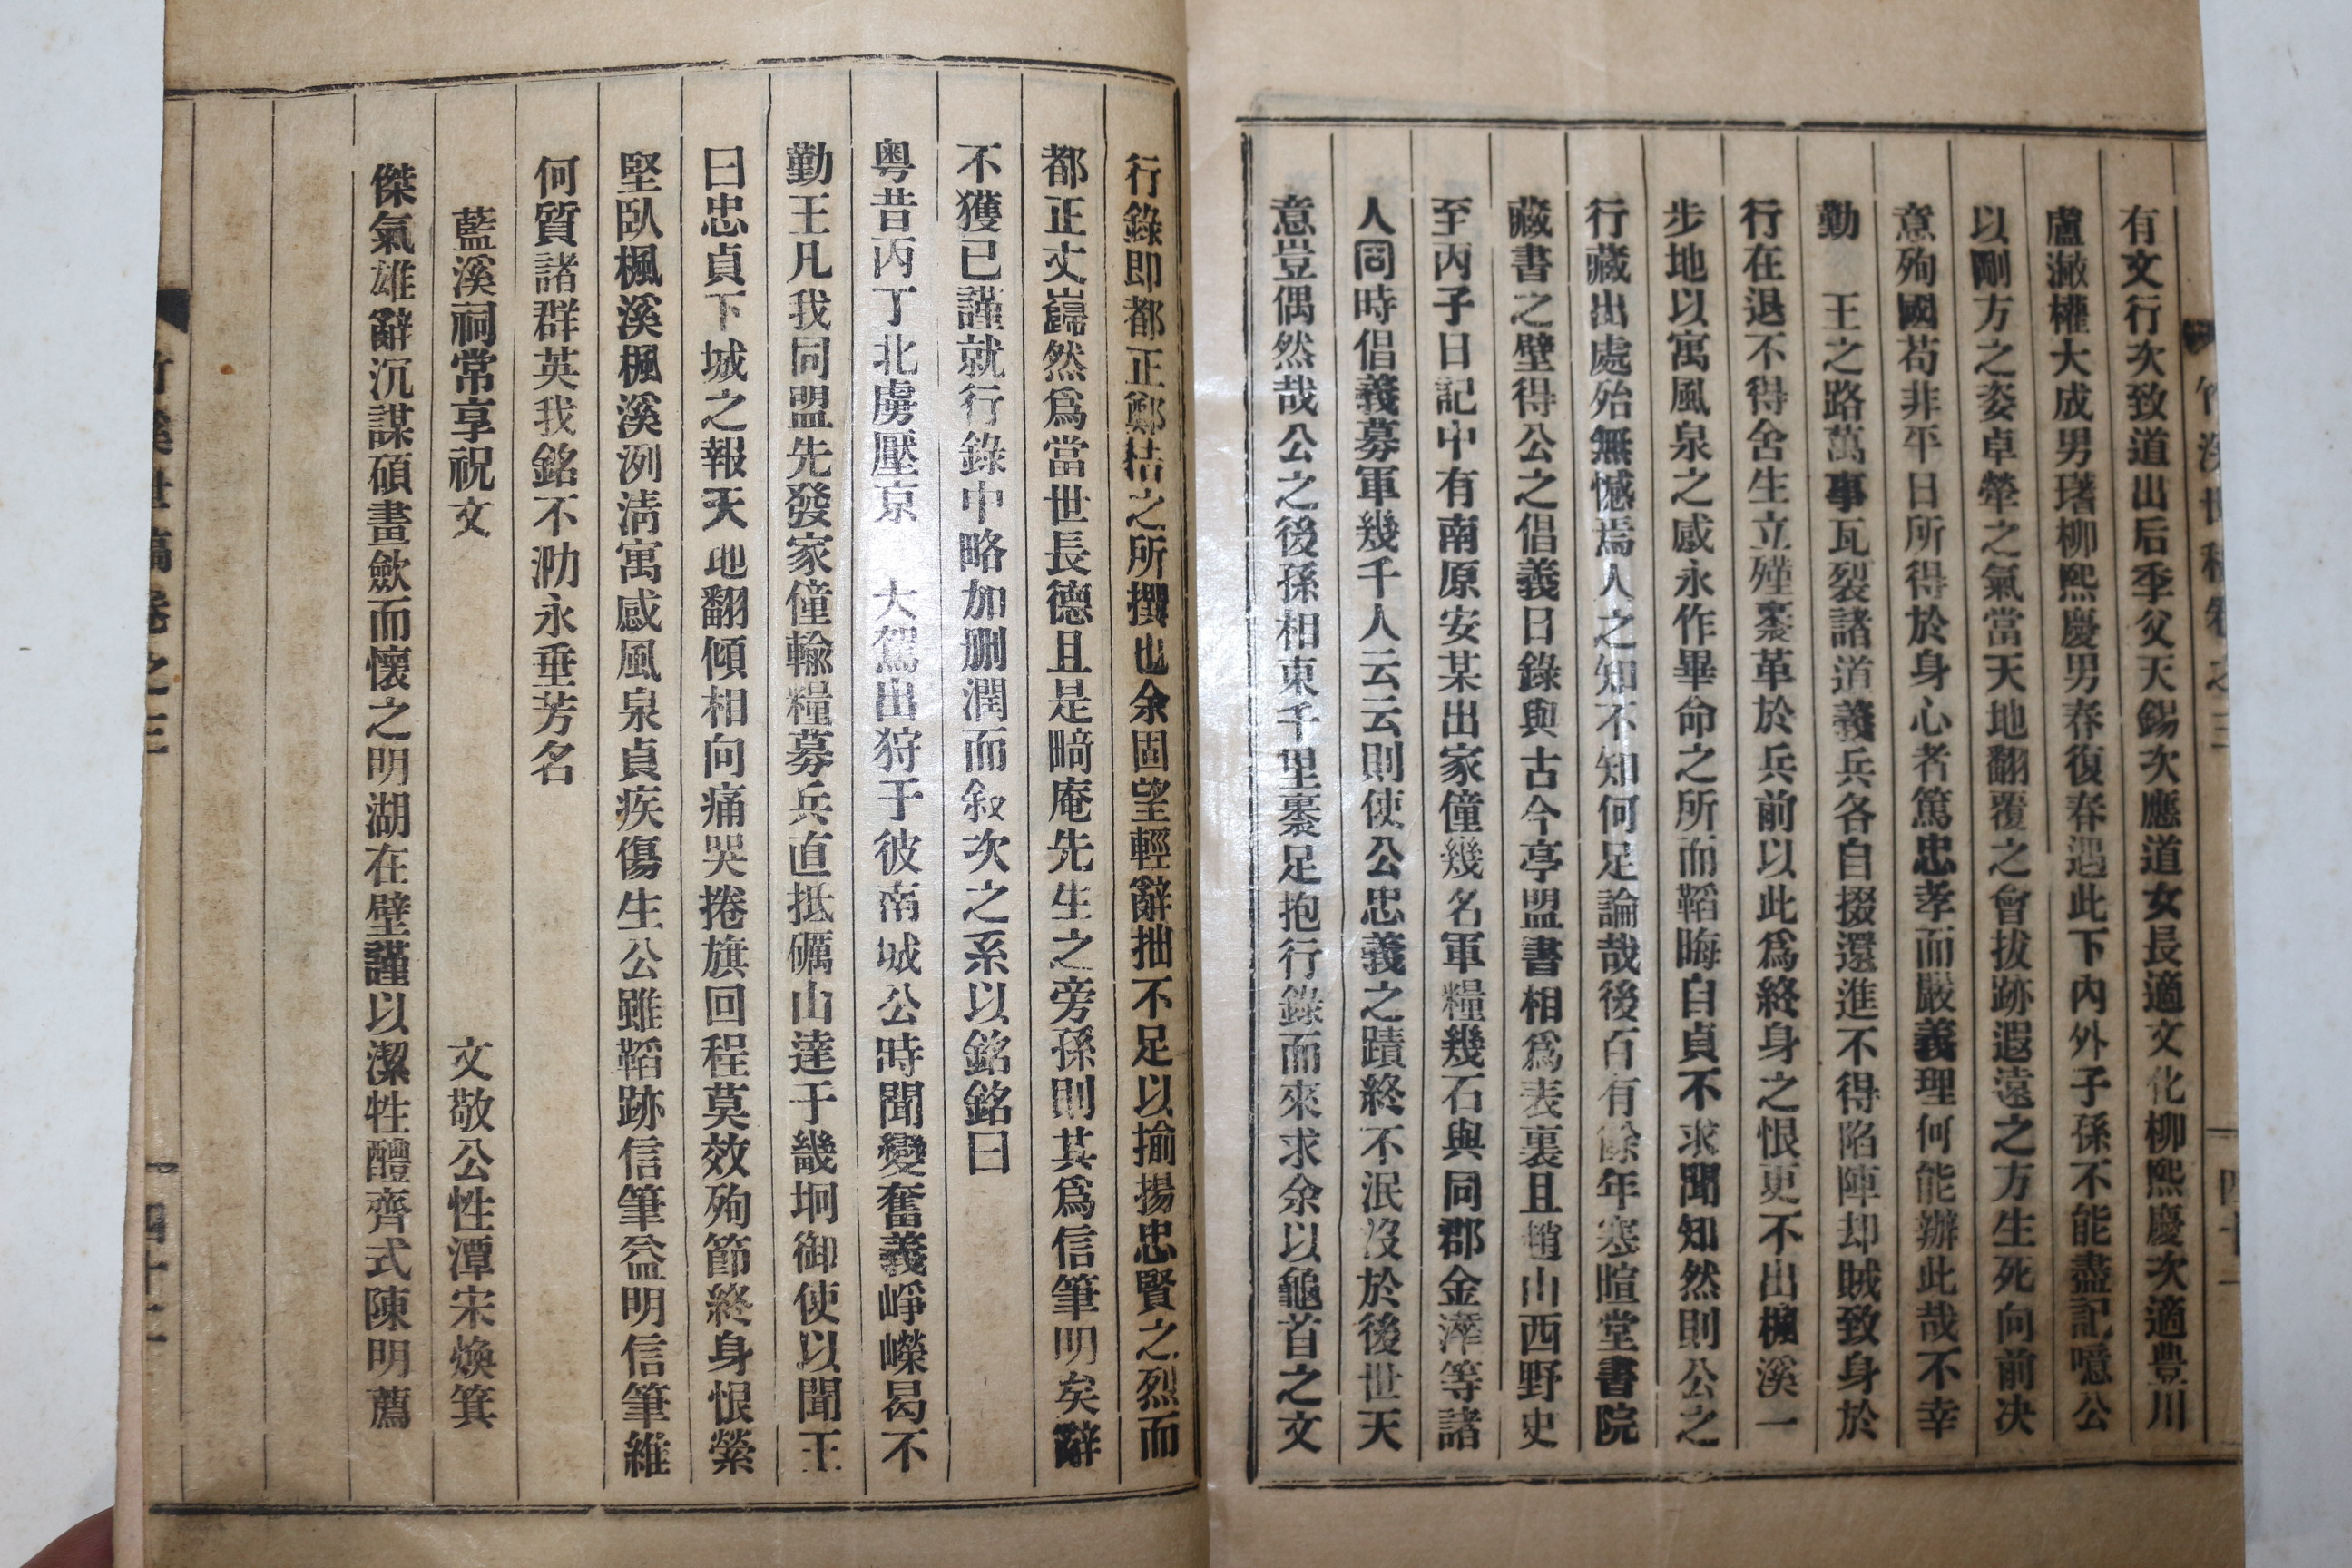 有文行次致道出后季父天錫次應道女長適文化柳熙慶次適豊川
盧瀓權大成男瑎柳熙慶男春復春遇此下內外子孫不能盡記噫公
以剛方之姿卓犖之氣當天地翻覆之會拔跡遐遠之方生死向前决
意殉國苟非平日所得於身心者篤忠孝而嚴義理何能辦此哉不幸
勤 王之路萬事瓦裂諸道義兵各自掇還進不得陷陣却賊致身於
行在退不得舍生立殣裹革於兵前以此爲終身之恨更不出楓溪一
步地以寓風泉之感永作畢命之所而韜晦自貞不求聞知然則公之
行藏出處殆無憾焉人之知不知何足論哉後百有餘年寒暄堂書院
藏書之壁得公之倡義日錄與古今亭盟書相爲表裏且趙山西野史
至丙子日記中有南原安某出家僮幾名軍糧幾石與同郡金滓等諸
人同時倡義募軍幾千人云云則使公忠義之蹟終不泯沒於後世天
意豈偶然哉公之後孫相東千里裹足抱行錄而來求余以龜首之文
竹溪世稿卷之三
四十一
行錄即都正鄭桔之所撰也余固望輕辭拙不足以揄揚忠賢之烈而
都正丈巋然爲當世長德且是畸庵先生之旁孫則其爲信筆明矣辭
不獲已謹就行錄中略加删潤而敘次之系以銘銘曰
粤昔丙丁北虜壓京 大駕出狩于彼南城公時聞變奮義崢嶸曷不
勤王凡我同盟先發家僮輸糧募兵直抵礪山達于畿坰御使以聞王
曰忠貞下城之報天地翻傾相向痛哭捲旗回程莫效殉節終身恨縈
堅臥楓溪楓溪洌淸寓感風泉貞疾傷生公雖韜跡信筆益明信筆維
何質諸群英我銘不泐永垂芳名
藍溪祠常享祝文 文敬公性潭宋煥箕
傑氣雄辭沉謀碩畫斂而懷之明湖在壁謹以潔牲醴齊式陳明薦
竹溪世稿卷之三
四十二